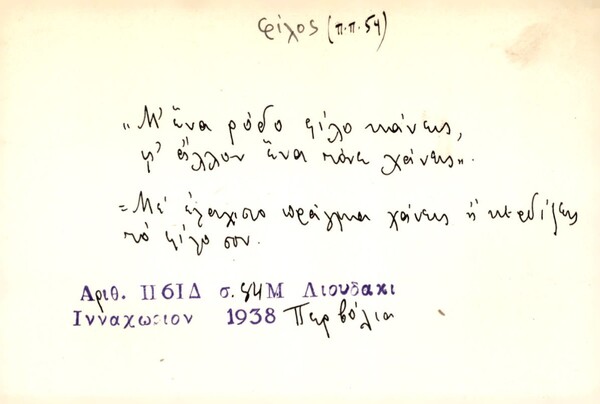 φίλος (π.π. 54)
"Μ' ἕνα ρόδο φίλο κάνεις,
μ' ἄλλον ἕνα τόνε χάνεις".
= Μέ ἐλάχιστο πρᾶγμα χάνεις ἤ κερδίζεις
τό φίλο σου.
Αριθ. ΙΙ61Δ σ. 84 Μ Λιουδακι
Ινναχωριον 1938 Περβόλια